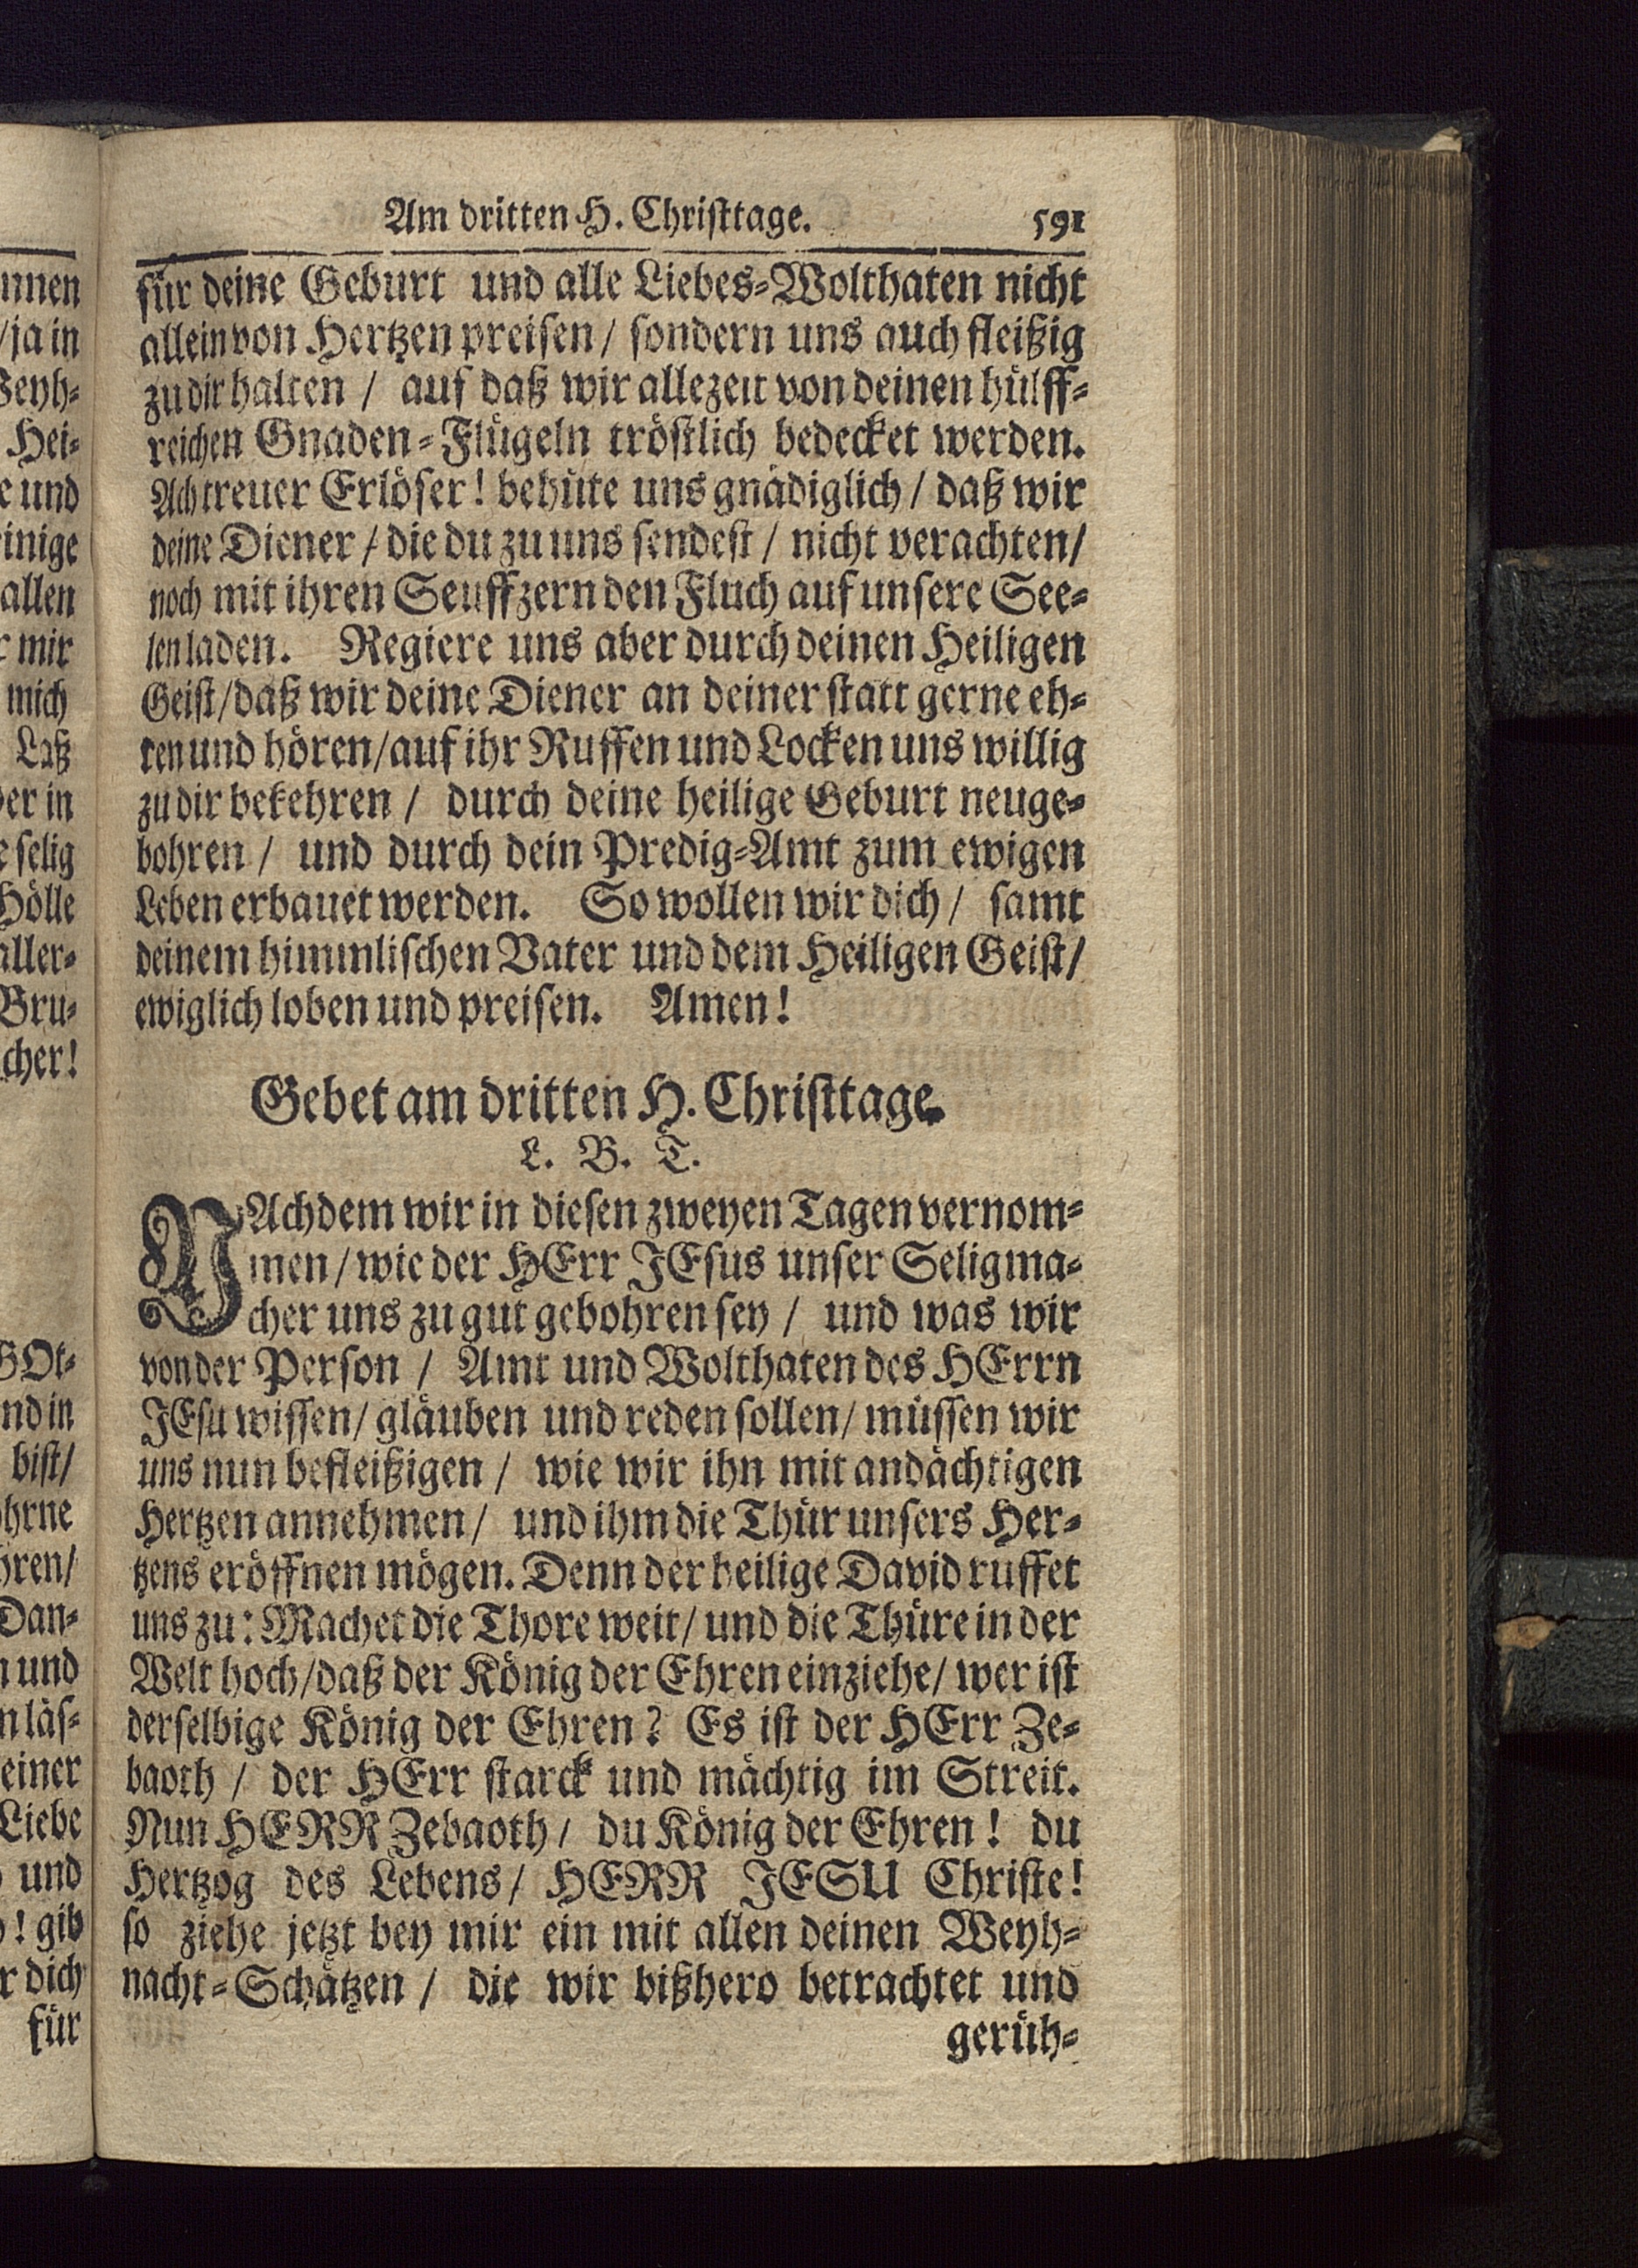 Am dritten H. Christtage. 591
für deine Geburt und alle Liebes-Wolthaten nicht
allein von Hertzen preisen / sondern uns auch fleißig
zu dir halten / auf daß wir allezeit von deinen hülff-
reichen Gnaden-Flügeln tröstlich bedecket werden.
Ach treuer Erlöser! behüte uns gnädiglich / daß wir
deine Diener / die du zu uns sendest / nicht verachten/
noch mit ihren Seuffzern den Fluch auf unsere See-
len laden. Regiere uns aber durch deinen Heiligen
Geist/daß wir deine Diener an deiner statt gerne eh-
ren und hören/auf ihr Ruffen und Locken uns willig
zu dir bekehren / durch deine heilige Geburt neuge-
bohren / und durch dein Predig-Amt zum ewigen
Leben erbauet werden. So wollen wir dich / samt
deinem himmlischen Vater und dem Heiligen Geist/
ewiglich loben und preisen. Amen!
Gebet am dritten H. Christtage.
L. B. T.
NAchdem wir in diesen zweyen Tagen vernom-
men / wie der HErr JEsus unser Seligma-
cher uns zu gut gebohren sey / und was wir
von der Person / Amt und Wolthaten des HErrn
JEsu wissen/ gläuben und reden sollen/ müssen wir
uns nun befleißigen / wie wir ihn mit andächtigen
Hertzen annehmen/ und ihm die Thür unsers Her-
tzens eröffnen mögen. Denn der heilige David ruffet
uns zu: Machet die Thore weit/ und die Thüre in der
Welt hoch/daß der König der Ehren einziehe/ wer ist
derselbige König der Ehren? Es ist der HErr Ze-
baoth / der HErr starck und mächtig im Streit.
Nun HERR Zebaoth / du König der Ehren! du
Hertzog des Lebens/ HERR JESU Christe!
so ziehe jetzt bey mir ein mit allen deinen Weyh-
nacht-Schätzen / die wir bißhero betrachtet und
gerüh-